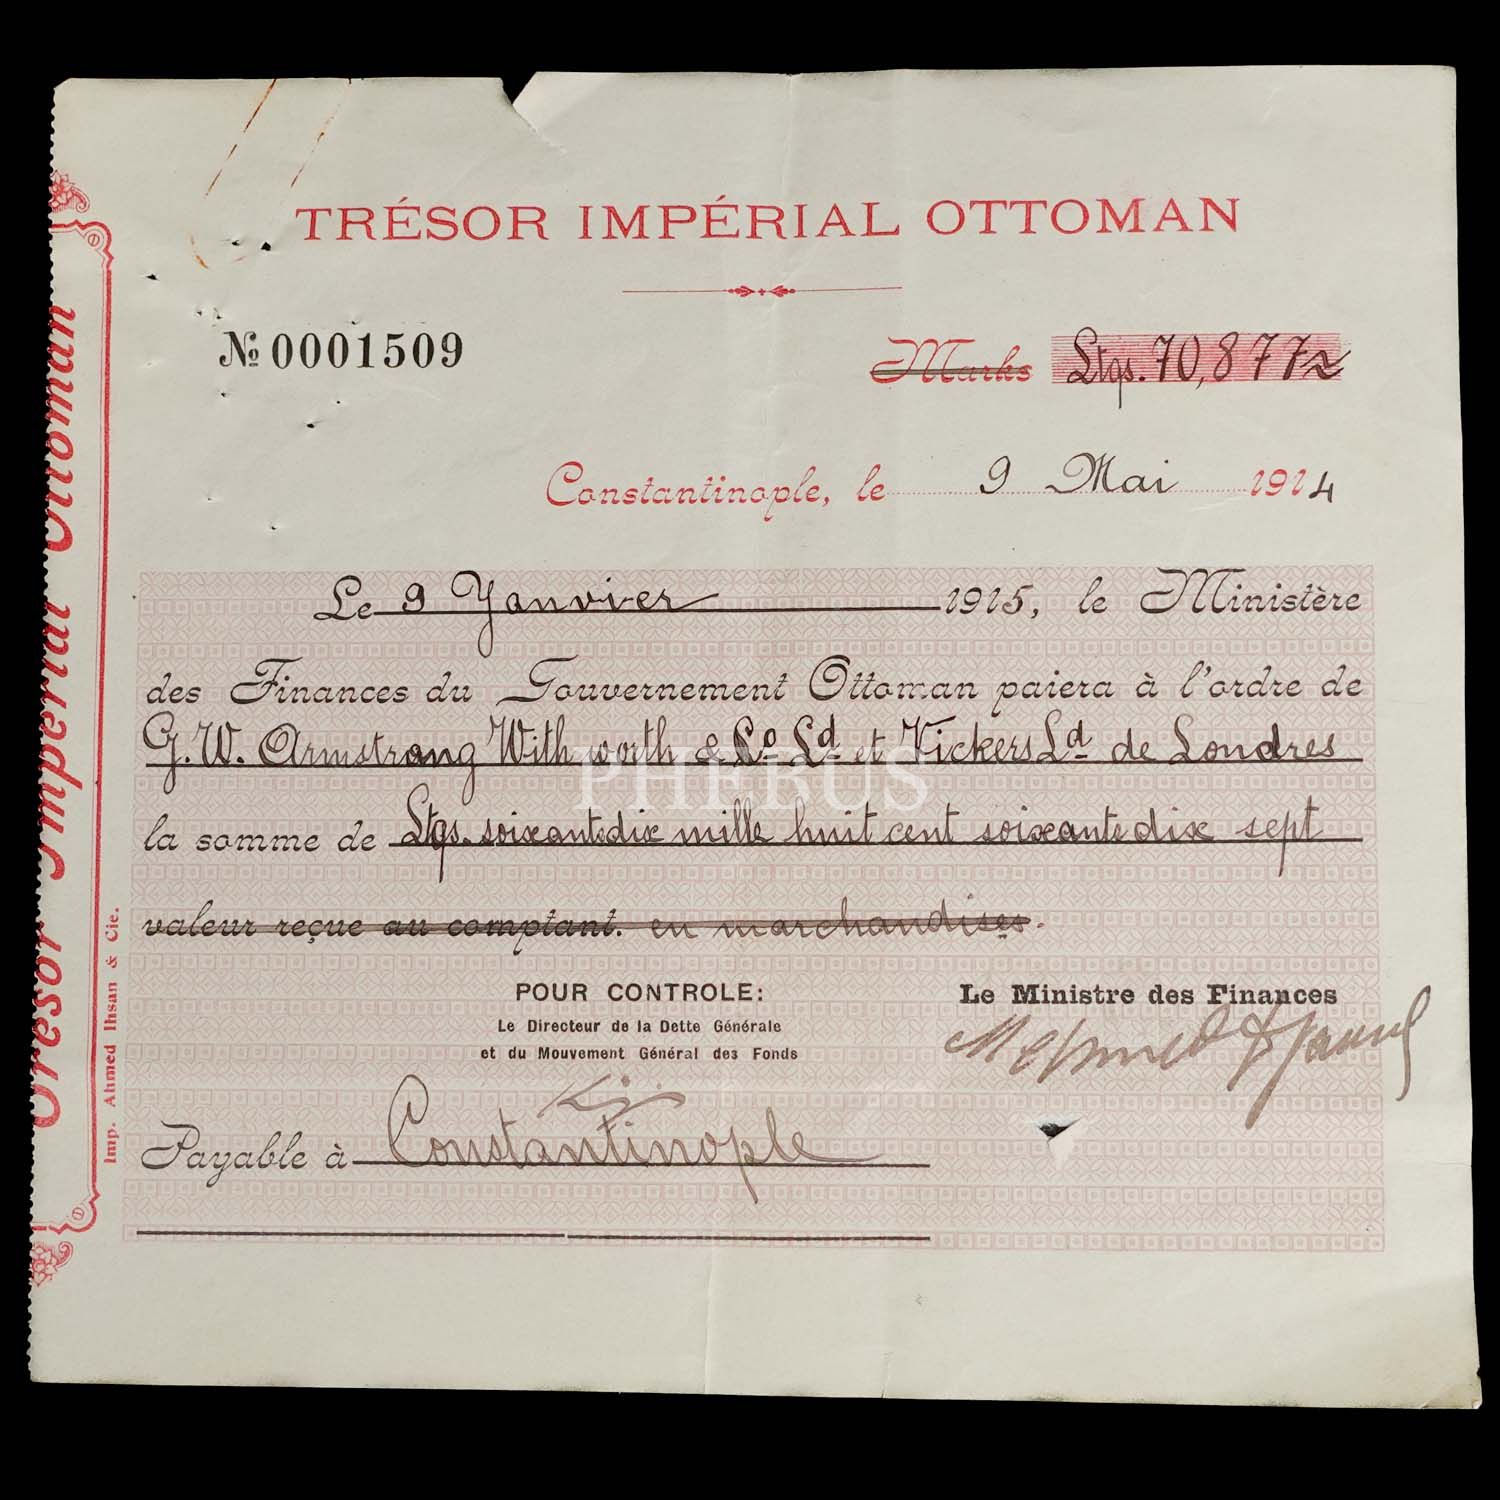 TRÉSOR IMPÉRIAL OTTOMAN
№ 0001509
Marks Ltqs. 70,877~
Constantinople, le 9 Mai 1914
Le 9 Yanvier 1915, le Ministère
des Finances du Gouvernement Ottoman paiera à l'ordre de
G. W. Armstrong With worth & Co Ld et Vickers Ld de Londres
la somme de Ltqs. soixantedix mille huit cent soixante dix sept
valeur reçue au comptant. en marchandises.
POUR CONTROLE:
Le Directeur de la Dette Générale
et du Mouvement Général des Fonds
Le Ministre des Finances
Mehmed Djavid
Payable à Constantinople
Trésor Impérial Ottoman
Imp. Ahmed Ihsan & Cie.
PHEBUS